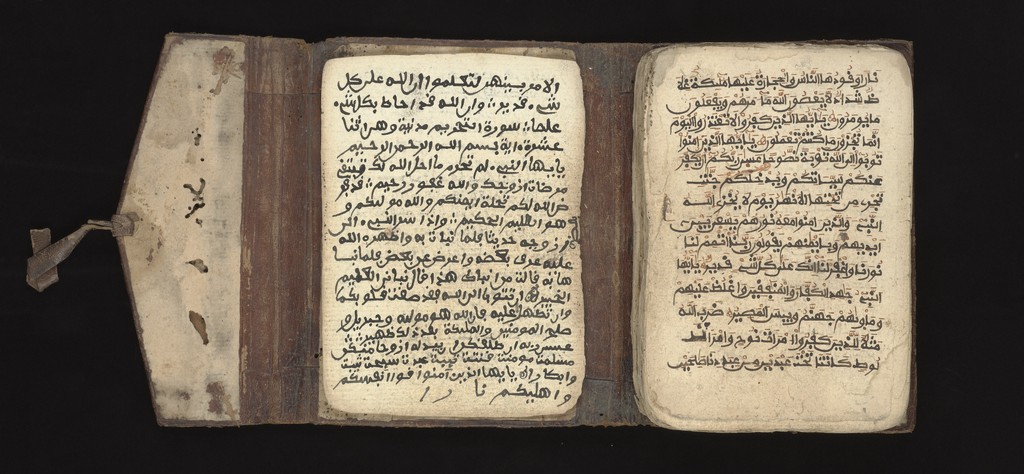 الامر بينهن لتعلموا ان الله على كل
شيء قدير وان الله قد احاط بكل شيء
علما سورة التحريم مدنية وهي اثنتا
عشرة اية بسم الله الرحمن الرحيم
يايها النبيء لم تحرم ما احل الله لك تبتغي
مرضات ازوجك والله غفور رحيم قد فر
ض الله لكم تحلة ايمنكم والله موليكم و
هو العليم الحكيم واذ اسر النبيء الى
ازوجه حديثا فلما نبات به واظهره الله
عليه عرف بعضه واعرض عن بعض فلما نبا
ها به قالت من انباك هذا قال نباني العليم
الخبير ان تتوبا الى الله فقد صغت قلوبكما
وان تظهرا عليه فان الله هو موليه وجبريل و
صلح المومنين والمليكة بعد ذلك ظهير
عسى ربه ان طلقكن ان يبدله ازوجا منكن
مسلمت مومنت قنتت تيبت عبدت سيحت ثيبت
وابكارا يايها الذين امنوا قوا انفسكم
واهليكم نا را
نارا وقودها الناس والحجارة عليها مليكة غلا
ظ شداد لا يعصون الله ما امرهم ويفعلون
ما يومرون يايها الذين كفروا لا تعتذروا اليوم
انما تجزون ما كنتم تعملون يايها الذين امنوا
توبوا الى الله توبة نصوحا عسى ربكم ان يكفر
عنكم سياتكم ويدخلكم جنت
تجري من تحتها الانهر يوم لا يخزي الله
النبيء والذين امنوا معه نورهم يسعى بين
ايديهم وبايمنهم يقولون ربنا اتمم لنا
نورنا واغفر لنا انك على كل شيء قدير يايها
النبيء جهد الكفار والمنفقين واغلظ عليهم
وماويهم جهنم وبيس المصير ضرب الله
مثلا للذين كفروا امرات نوح وامرات
لوط كانتا تحت عبدين من عبادنا صلحين